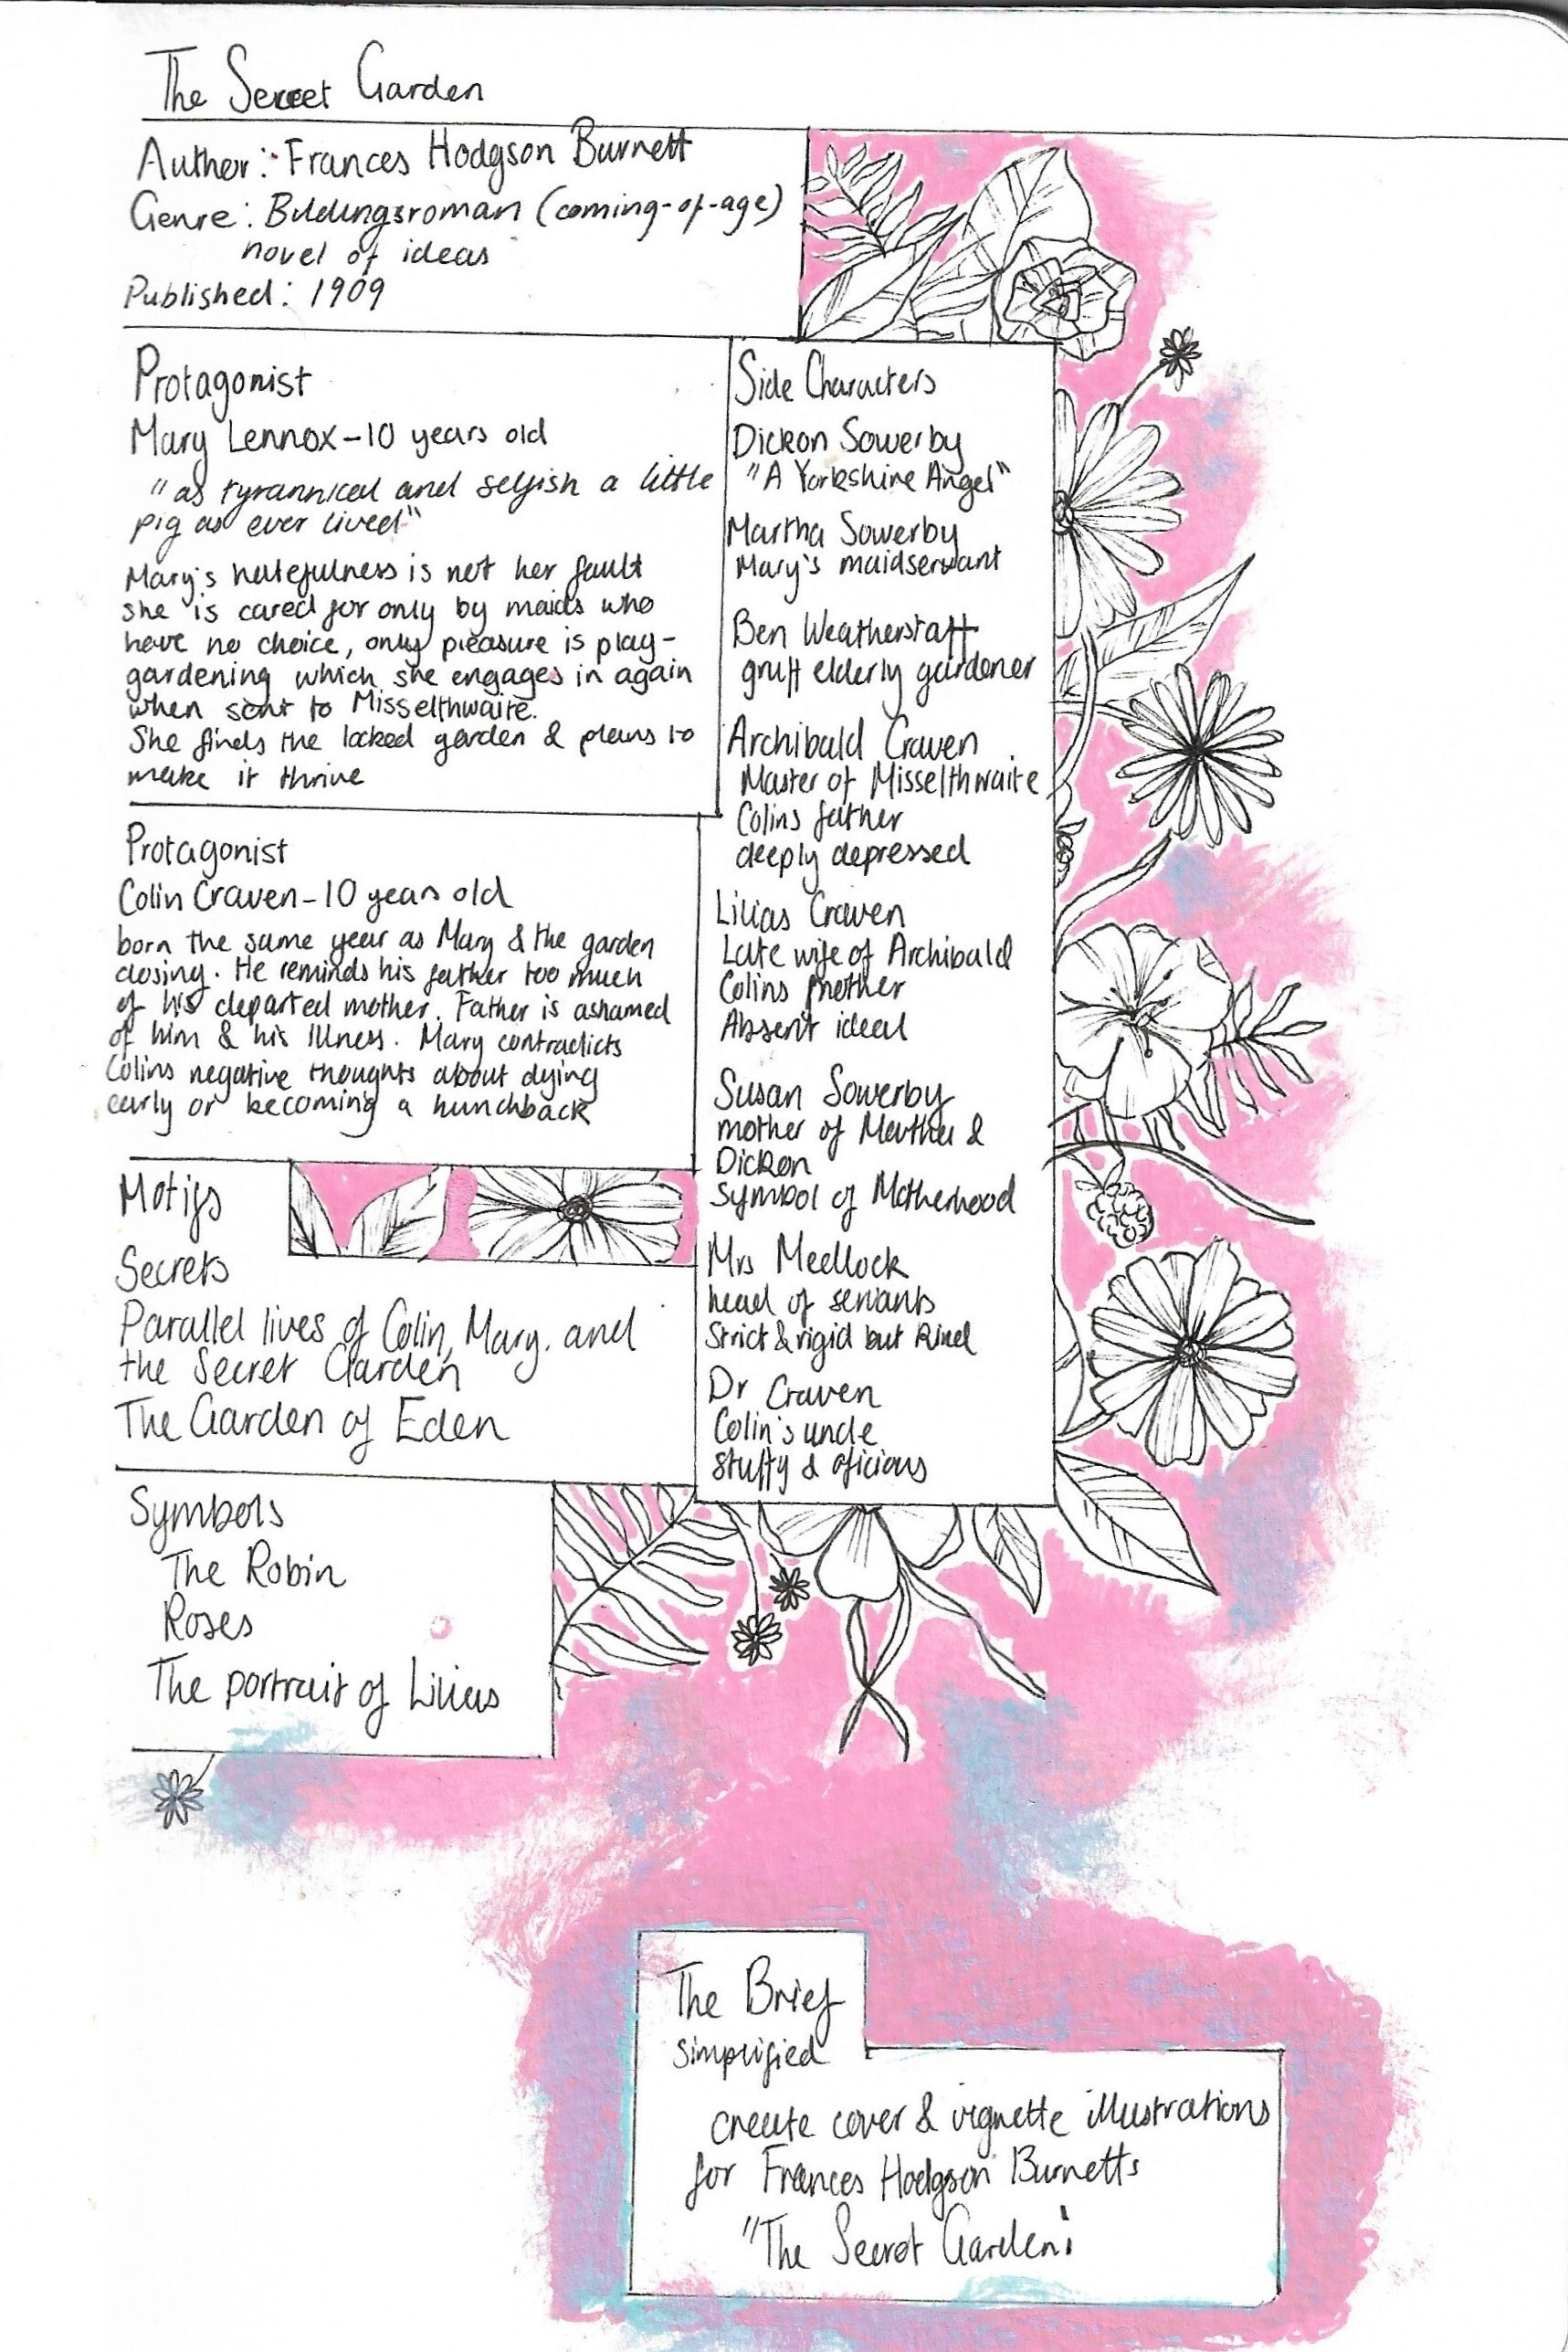 The Secret Garden
Author: Frances Hodgson Burnett
Genre: Bildungsroman (coming-of-age)
novel of ideas
Published: 1909
Protagonist
Mary Lennox - 10 years old
"as tyrannical and selfish a little
pig as ever lived"
Mary's hatefulness is not her fault
she is cared for only by maids who
have no choice, only pleasure is play-
gardening which she engages in again
when sent to Misselthwaite.
She finds the locked garden & plans to
make it thrive
Protagonist
Colin Craven - 10 years old
born the same year as Mary & the garden
closing. He reminds his father too much
of his departed mother. Father is ashamed
of him & his Illness. Mary contradicts
Colins negative thoughts about dying
early or becoming a hunchback
Motifs
Secrets
Parallel lives of Colin, Mary, and
the Secret Garden
The Garden of Eden
Symbols
The Robin
Roses
The portrait of Lilias
Side Characters
Dickon Sowerby
"A Yorkshire Angel"
Martha Sowerby
Mary's maidservant
Ben Weatherstaff
gruff elderly gardener
Archibald Craven
Master of Misselthwaite
Colins father
deeply depressed
Lilias Craven
Late wife of Archibald
Colins mother
Absent ideal
Susan Sowerby
mother of Martha &
Dickon
Symbol of Motherhood
Mrs Medlock
head of servants
Strict & rigid but kind
Dr Craven
Colin's uncle
stuffy & oficious
The Brief
simplified
create cover & vignette illustrations
for Frances Hodgson Burnetts
"The Secret Garden"